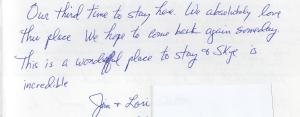 Our third time to stay here. We absolutely love
this place. We hope to come back again someday.
This is a wonderful place to stay & Skye is
incredible
Jim + Lori